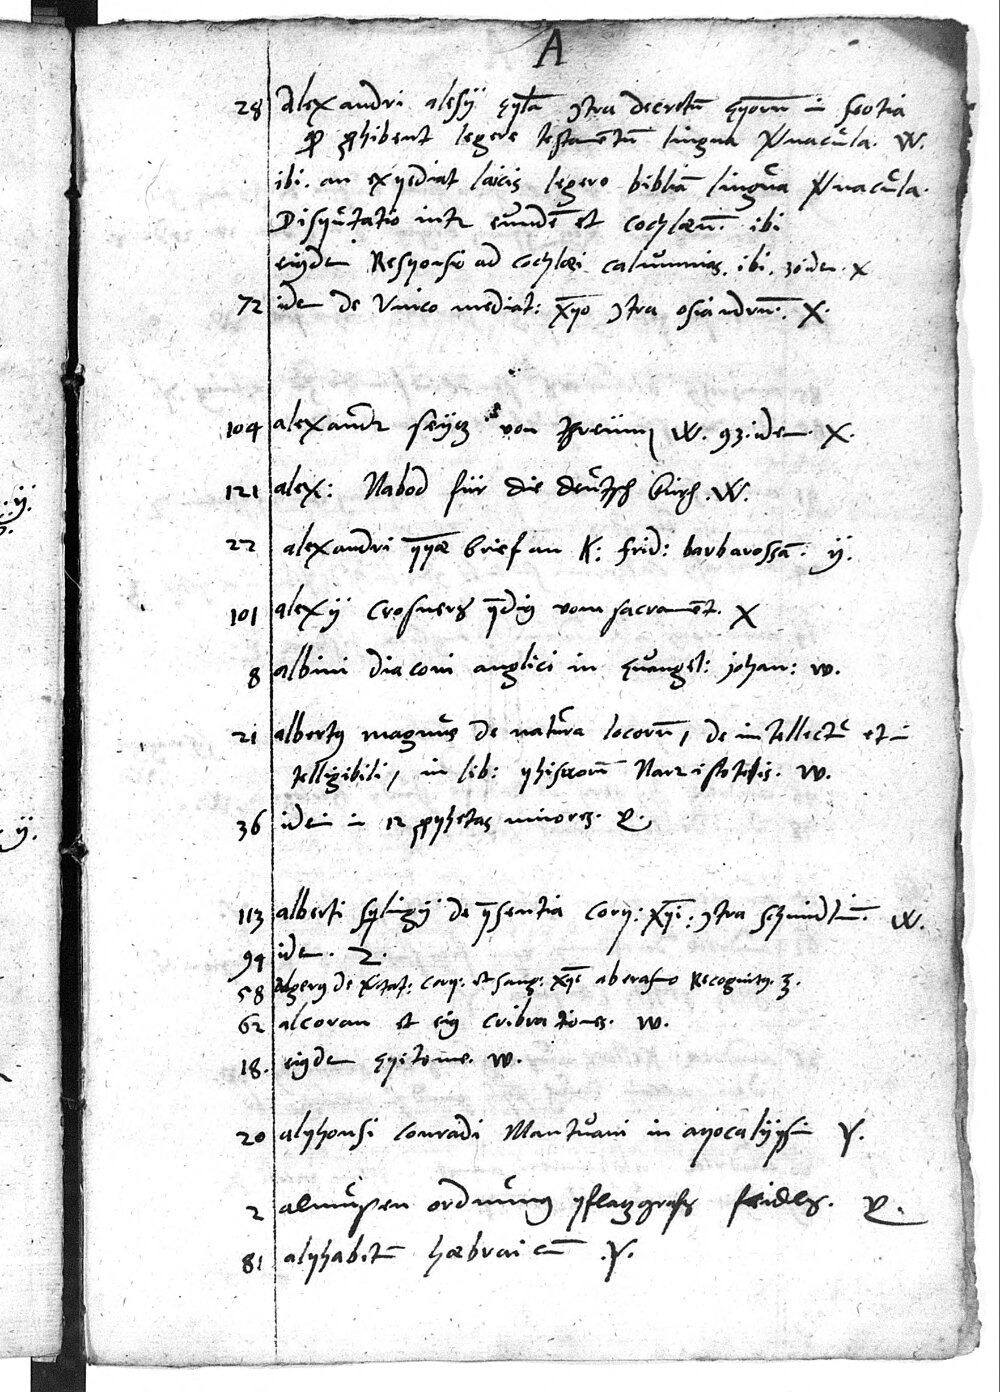 A
28 Alexandri alesij epla ꝯtra decretū eporū in scotia
ꝙ ꝓhibent legere testamentū lingua v̄nacula. W.
ibi. an expediat laicis legere bibliā lingua v̄nacula.
Disputatio intr eundē et cochlæū. ibi
eiusdem Responsio ad cochlæi calumnias. ibi. 30 idem. X
72 idem de Unico mediat: x̄po ꝯtra osiandrū. X.
104 alexandr seitz von W. 93. idem. X.
121 alex: Nabod für die deutsch kirch. W.
22 alexandri ppæ brief an K: frid: barbarossā. ij.
101 alexij Crosners p̄dig vom sacramēt. X
8 albini diaconi anglici in euangel: johan: w.
21 albertus magnus de natura locorū, de intellectu et in
telligibili, in lib: phisicorū Aristotelis. w.
36 idem in 12 ꝓphetas minores.
113 alberti de p̄sentia corp: x̄pi: ꝯtra W.
94 idem. 2.
58 Algerus de v̄itat: corp: et sang: x̄pi ab erasmo Recognitus. 3.
62 alcoran et eius cribrationes. w.
18. eiusdem epitome. w.
20 alphonsi conradi Mantuani in apocalÿpsim Y.
2 almusen ordnung pfaltzgrafs
81 alphabetū hæbraicū .Y.